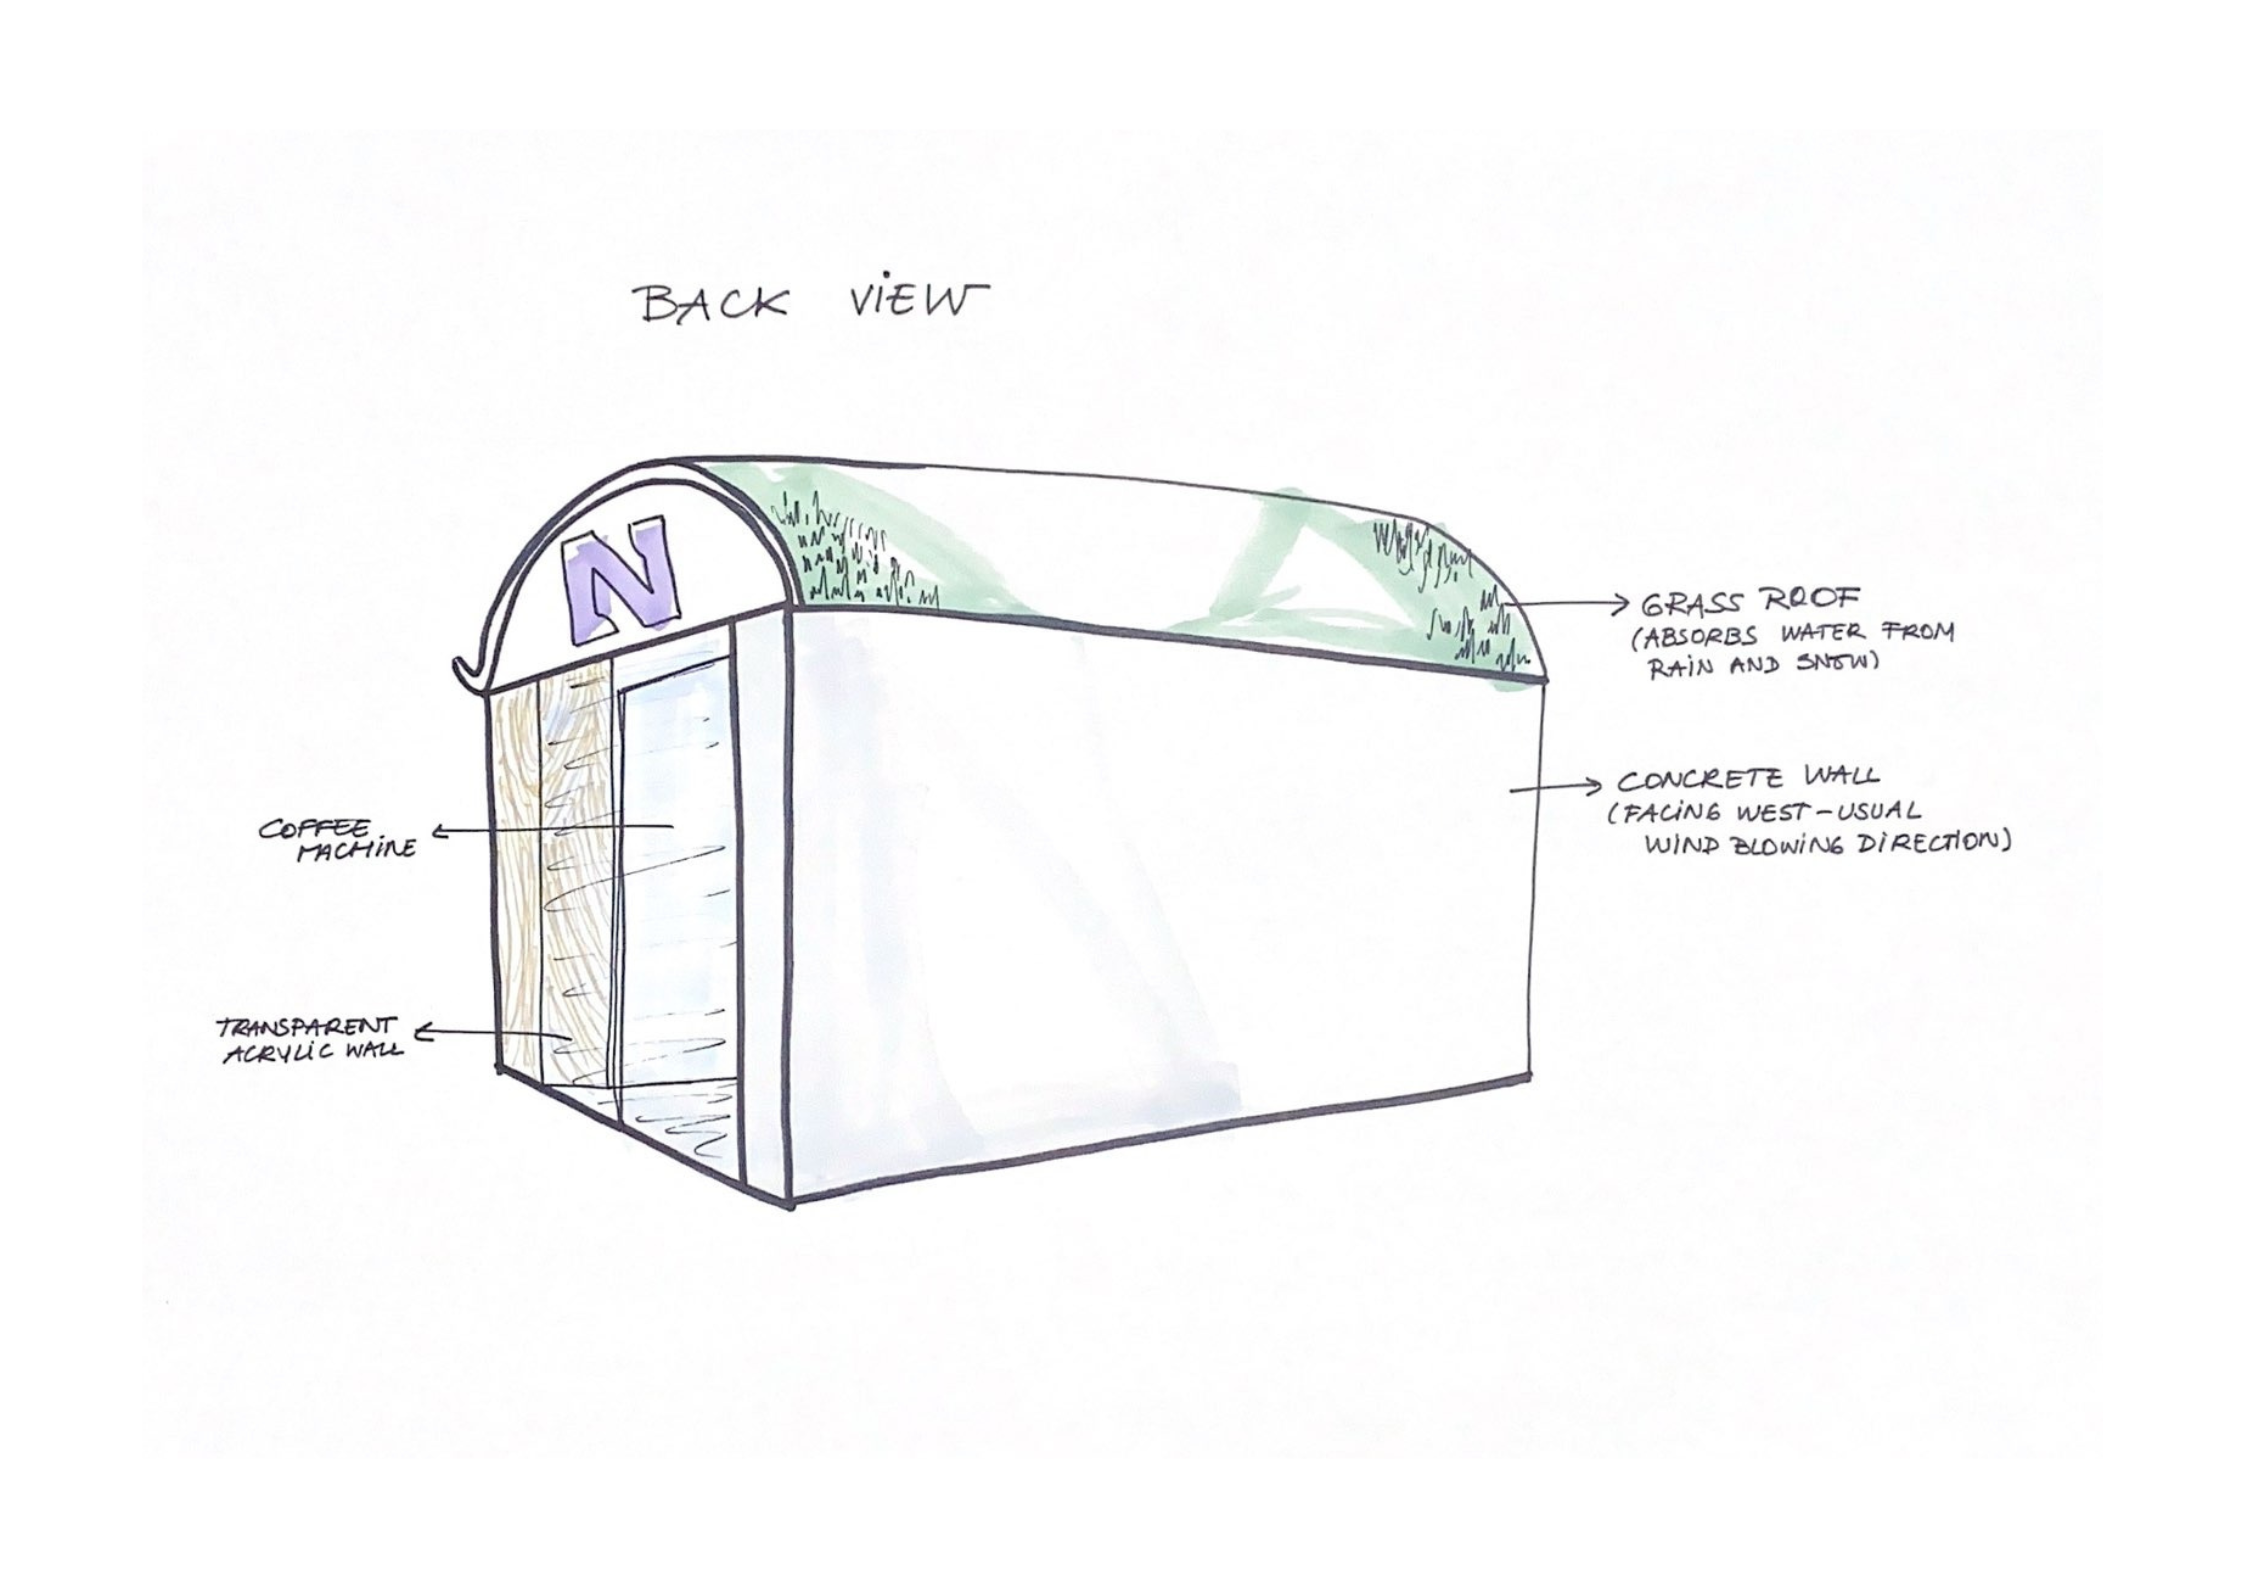 BACK VIEW
N
GRASS ROOF
(ABSORBS WATER FROM
RAIN AND SNOW)
CONCRETE WALL
(FACING WEST-USUAL
WIND BLOWING DIRECTION)
COFFEE
MACHINE
TRANSPARENT
ACRYLIC WALL